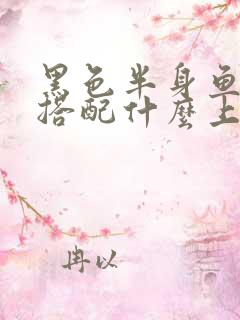 黑色半身鱼
搭配什麼上
冉以